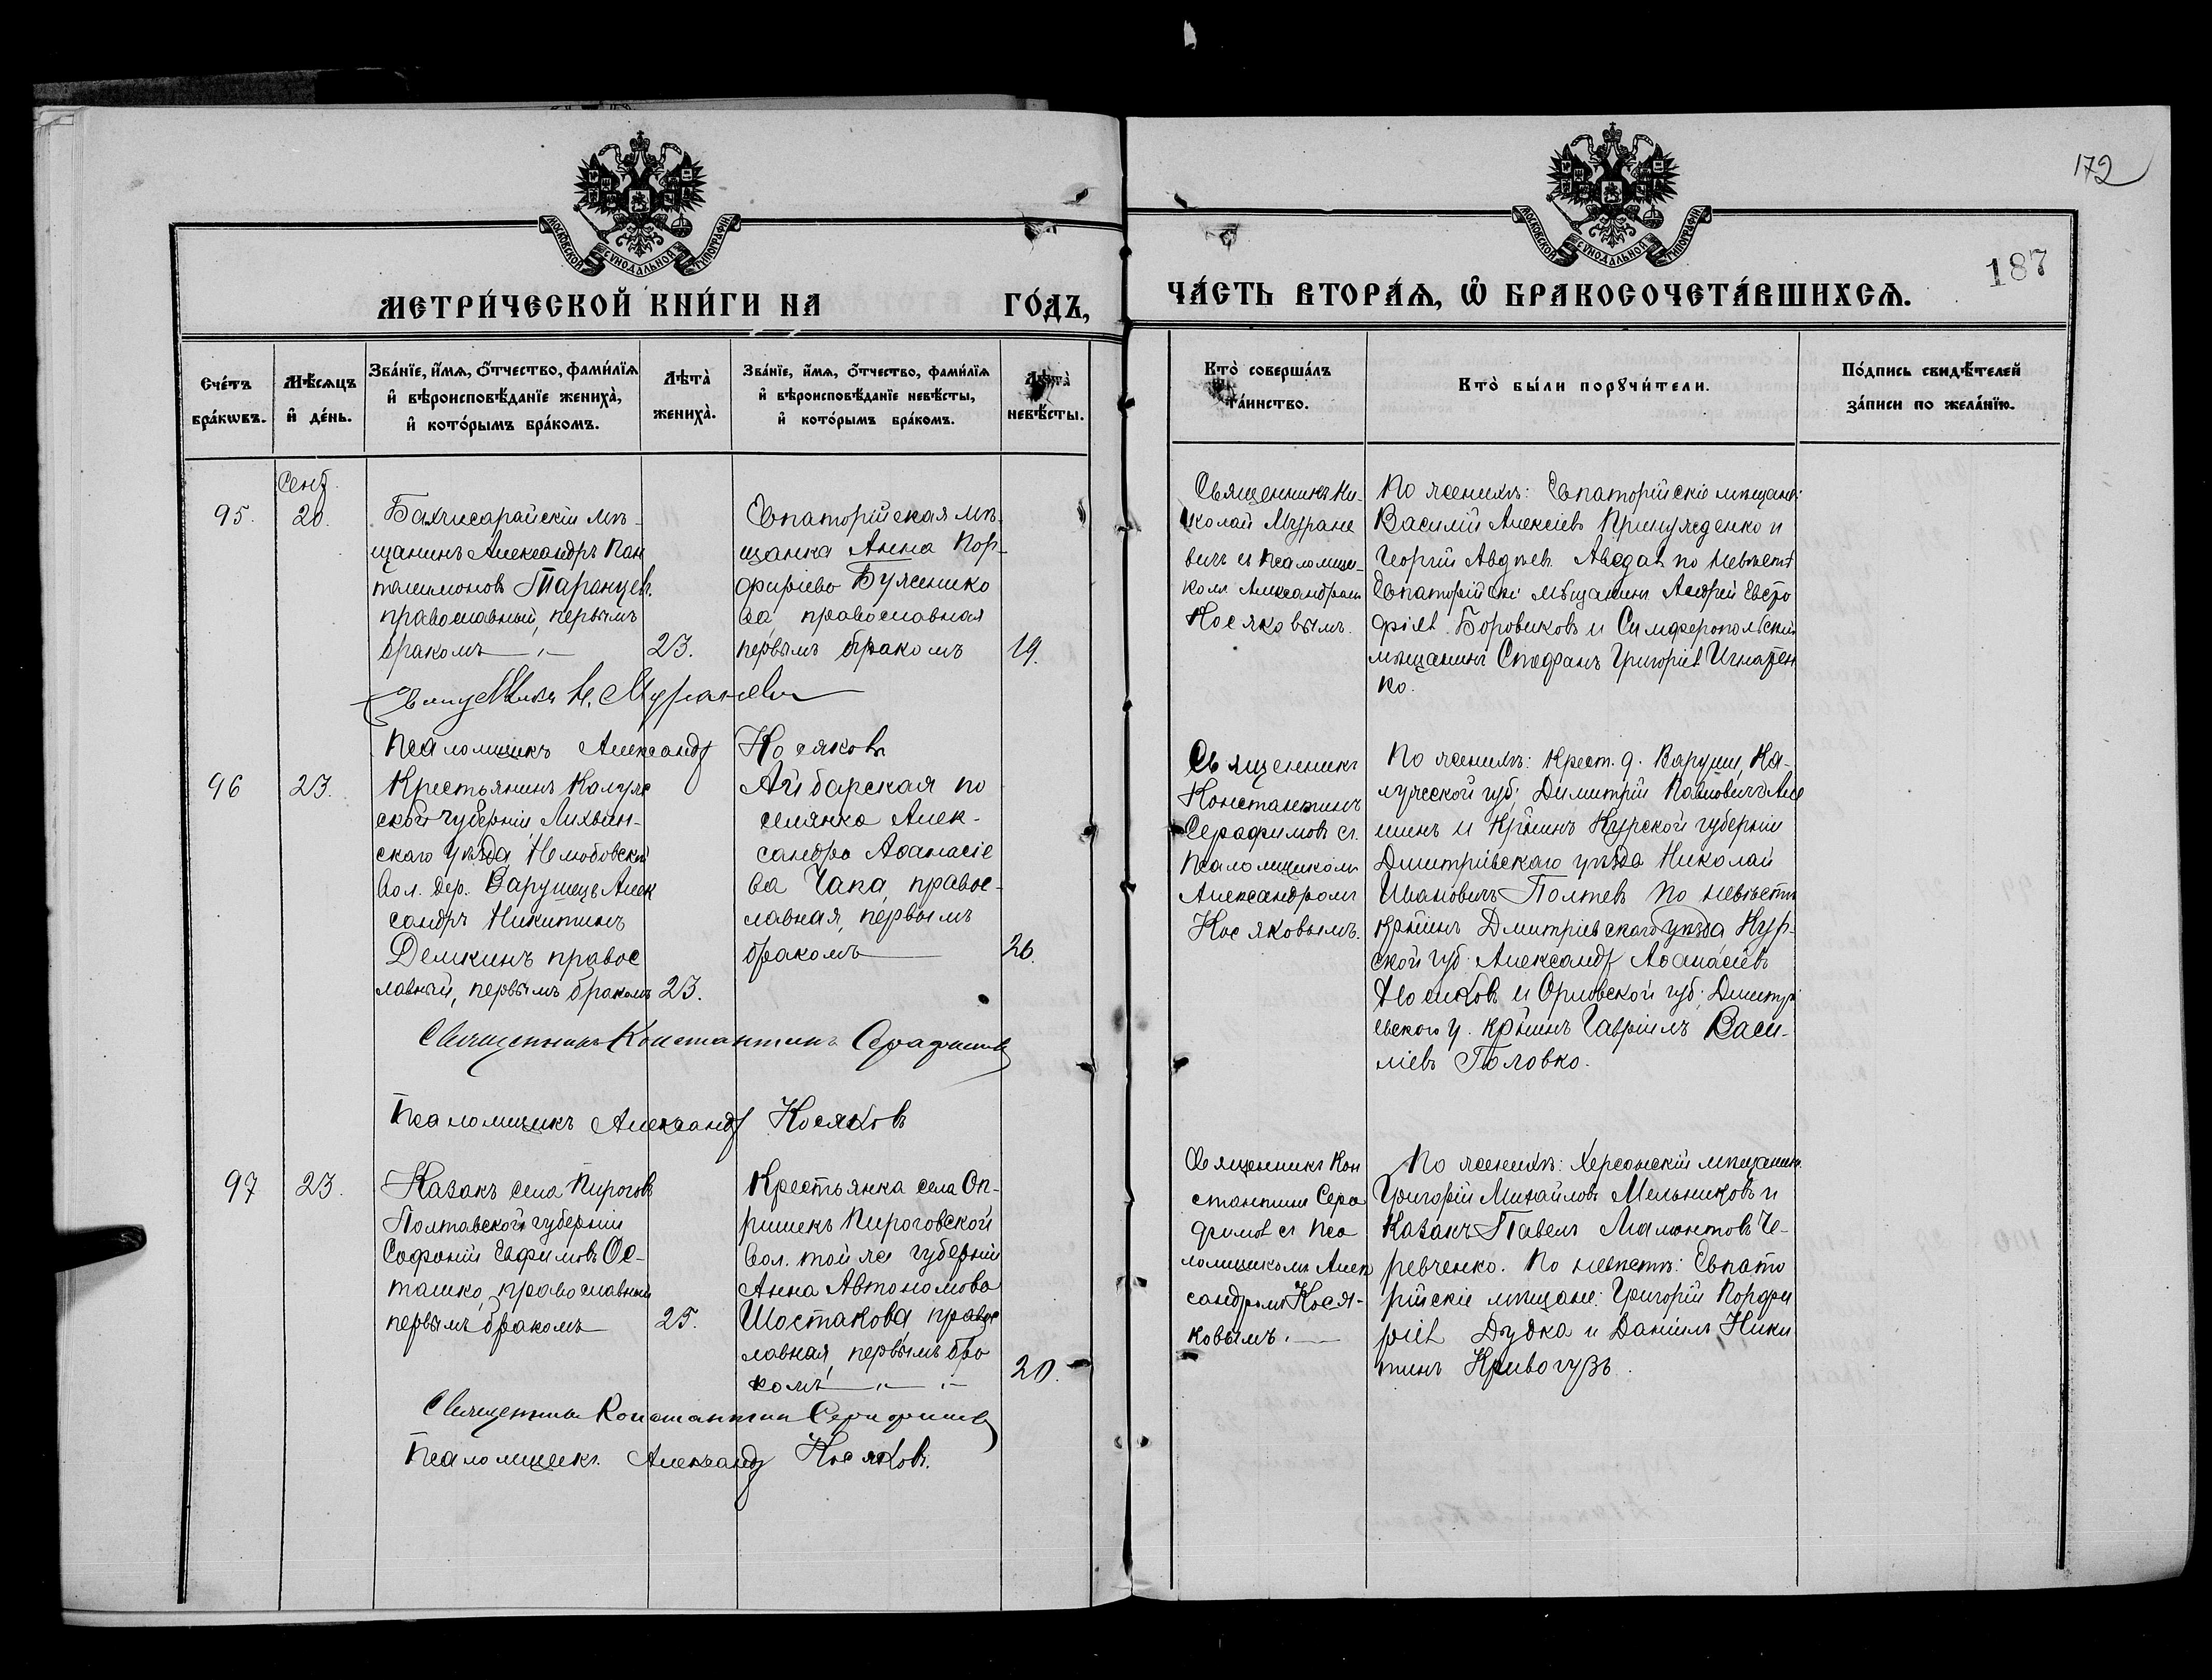 172
187
МОСКОВСКОЙ СѴНОДАЛЬНОЙ ТИПОГРАФІИ
МОСКОВСКОЙ СѴНОДАЛЬНОЙ ТИПОГРАФІИ
МЕТРИ́ЧЕСКОЙ КНИ́ГИ НА ГО́ДЪ,
ЧА́СТЬ ВТОРА́Ѧ, Ѽ БРАКОСОЧЕТА́ВШИХСѦ.
Сче́тъ
бра́кѡвъ.
Мѣ́сѧцъ
и҆ де́нь.
Зва́нїе, и҆́мѧ, ѻ҆́тчество, фами́лїѧ
и҆ вѣроисповѣ́данїе жениха̀,
и҆ кото́рымъ бра́комъ.
Лѣта̀
жениха̀.
Зва́нїе, и҆́мѧ, ѻ҆́тчество, фами́лїѧ
и҆ вѣроисповѣ́данїе невѣ́сты,
и҆ кото́рымъ бра́комъ.
Лѣта̀
невѣ́сты.
Кто̀ соверша́лъ
та́инство.
Кто̀ бы́ли порꙋчи́тели.
По́дпись свидѣ́телей
за́писи по жела́нїю.
95.
Сент.
20.
Бахчисарайскій мѣ-
щанинъ Александръ Пан
телимоновъ Таранцев.
православный, первымъ
бракомъ
23.
Евпаторійская мѣ-
щанка Анна Пор-
фиріево Буженико
ва, православная
первымъ бракомъ
19.
Священникъ Ни-
колай Муране
вичъ съ псаломщи-
комъ Александромъ
Косяковымъ.
По женихѣ: Евпаторійскіе мѣщане:
Василій Алексіевъ Принужденко и
Георгій Авдѣев. по невѣстѣ
Евпаторійскі мѣщанинъ Андрей Евстро
фіев. Боровиковъ и Симферопольскій
мѣщанинъ Стефанъ Григоріев Игнатен
ко.
Священникъ Н. Мураневич
Псаломщикъ Александр Косяковъ
96
23.
Крестьянинъ Калуж
ской губерніи Лихвин-
скаго уѣзда,
Вол. дер. Варушецъ Алек
сандръ Никитинъ
Демкинъ правос
лавный, первымъ бракомъ
23.
Айбарская по
селянка Алек-
сандра Аѳанасіе
ва Чапа, правос-
лавная, первымъ
бракомъ
26.
Священникъ
Константинъ
Серафимовъ съ
Псаломщикомъ
Александромъ
Косяковымъ.
По женихѣ: Крест. д. Варуши, Ка-
лужской губ; Димитрій Павловичъ Але
шинъ и Кр̃инъ Курской губерніи
Дмитріевскаго уѣзда Николай
Ивановичъ Полтев. По невѣстѣ
кр̃инъ Дмитріевскаго уѣзда Кур-
ской губ. Александр Аѳанасіевъ
Носиковъ и Орловской губ; Дмитрі
евского у. кр̃инъ Гавріилъ Васи-
ліевъ Головко.
Священникъ Константинъ Серафимов
Псаломщикъ Александр Косяковъ
97
23.
Казакъ села Пироговъ
Полтавской губерніи
Софоній Евфимовъ Ос-
ташко, православный
первымъ бракомъ
25.
Крестьянка села Оп-
ришекъ Пироговской
Вол. той же губерніи
Анна Автономова
Шостакова правос
лавная, первымъ бра
комъ
20.
Священникъ Кон
стантинъ Сера
фимов съ Пса
ломщикомъ Алек
сандромъ Кося-
ковымъ.
По женихѣ: Херсонскій мѣщанинъ
Григорій Михайловъ Мельниковъ и
Казакъ Павелъ Мамонтовъ Че-
ревченко. По невѣстѣ: Евпато
рійскіе мѣщане: Григорій Порфи
ріев Дудка и Даніилъ Ники
тинъ Кривогузъ.
Священникъ Константин Серафимов
Псаломщикъ Александр Косяковъ.